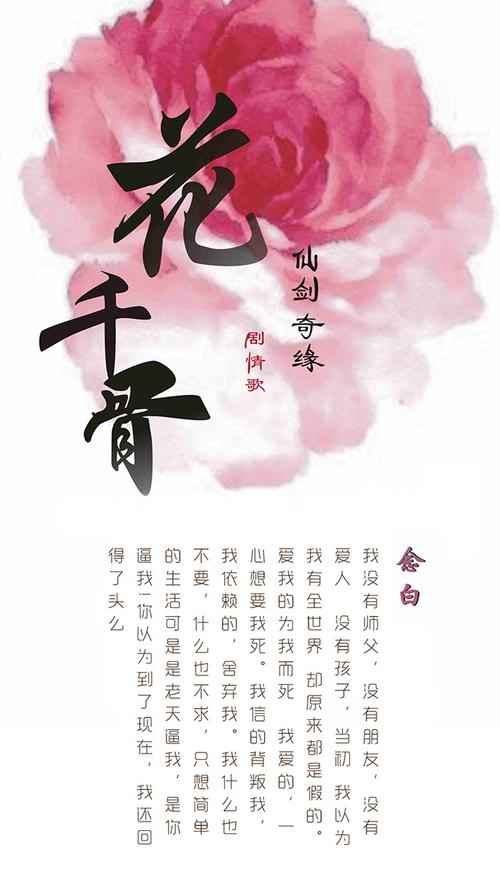 花千骨
仙剑奇缘
剧情歌
念白
我没有师父，没有朋友，没有
爱人 没有孩子，当初 我以为
我有全世界 却原来都是假的。
爱我的为我而死 我爱的，一
心想要我死。 我信的背叛我，
我依赖的，舍弃我。 我什么也
不要，什么也不求，只想简单
的生活可是是老天逼我，是你
逼我！你以为到了现在，我还回
得了头么